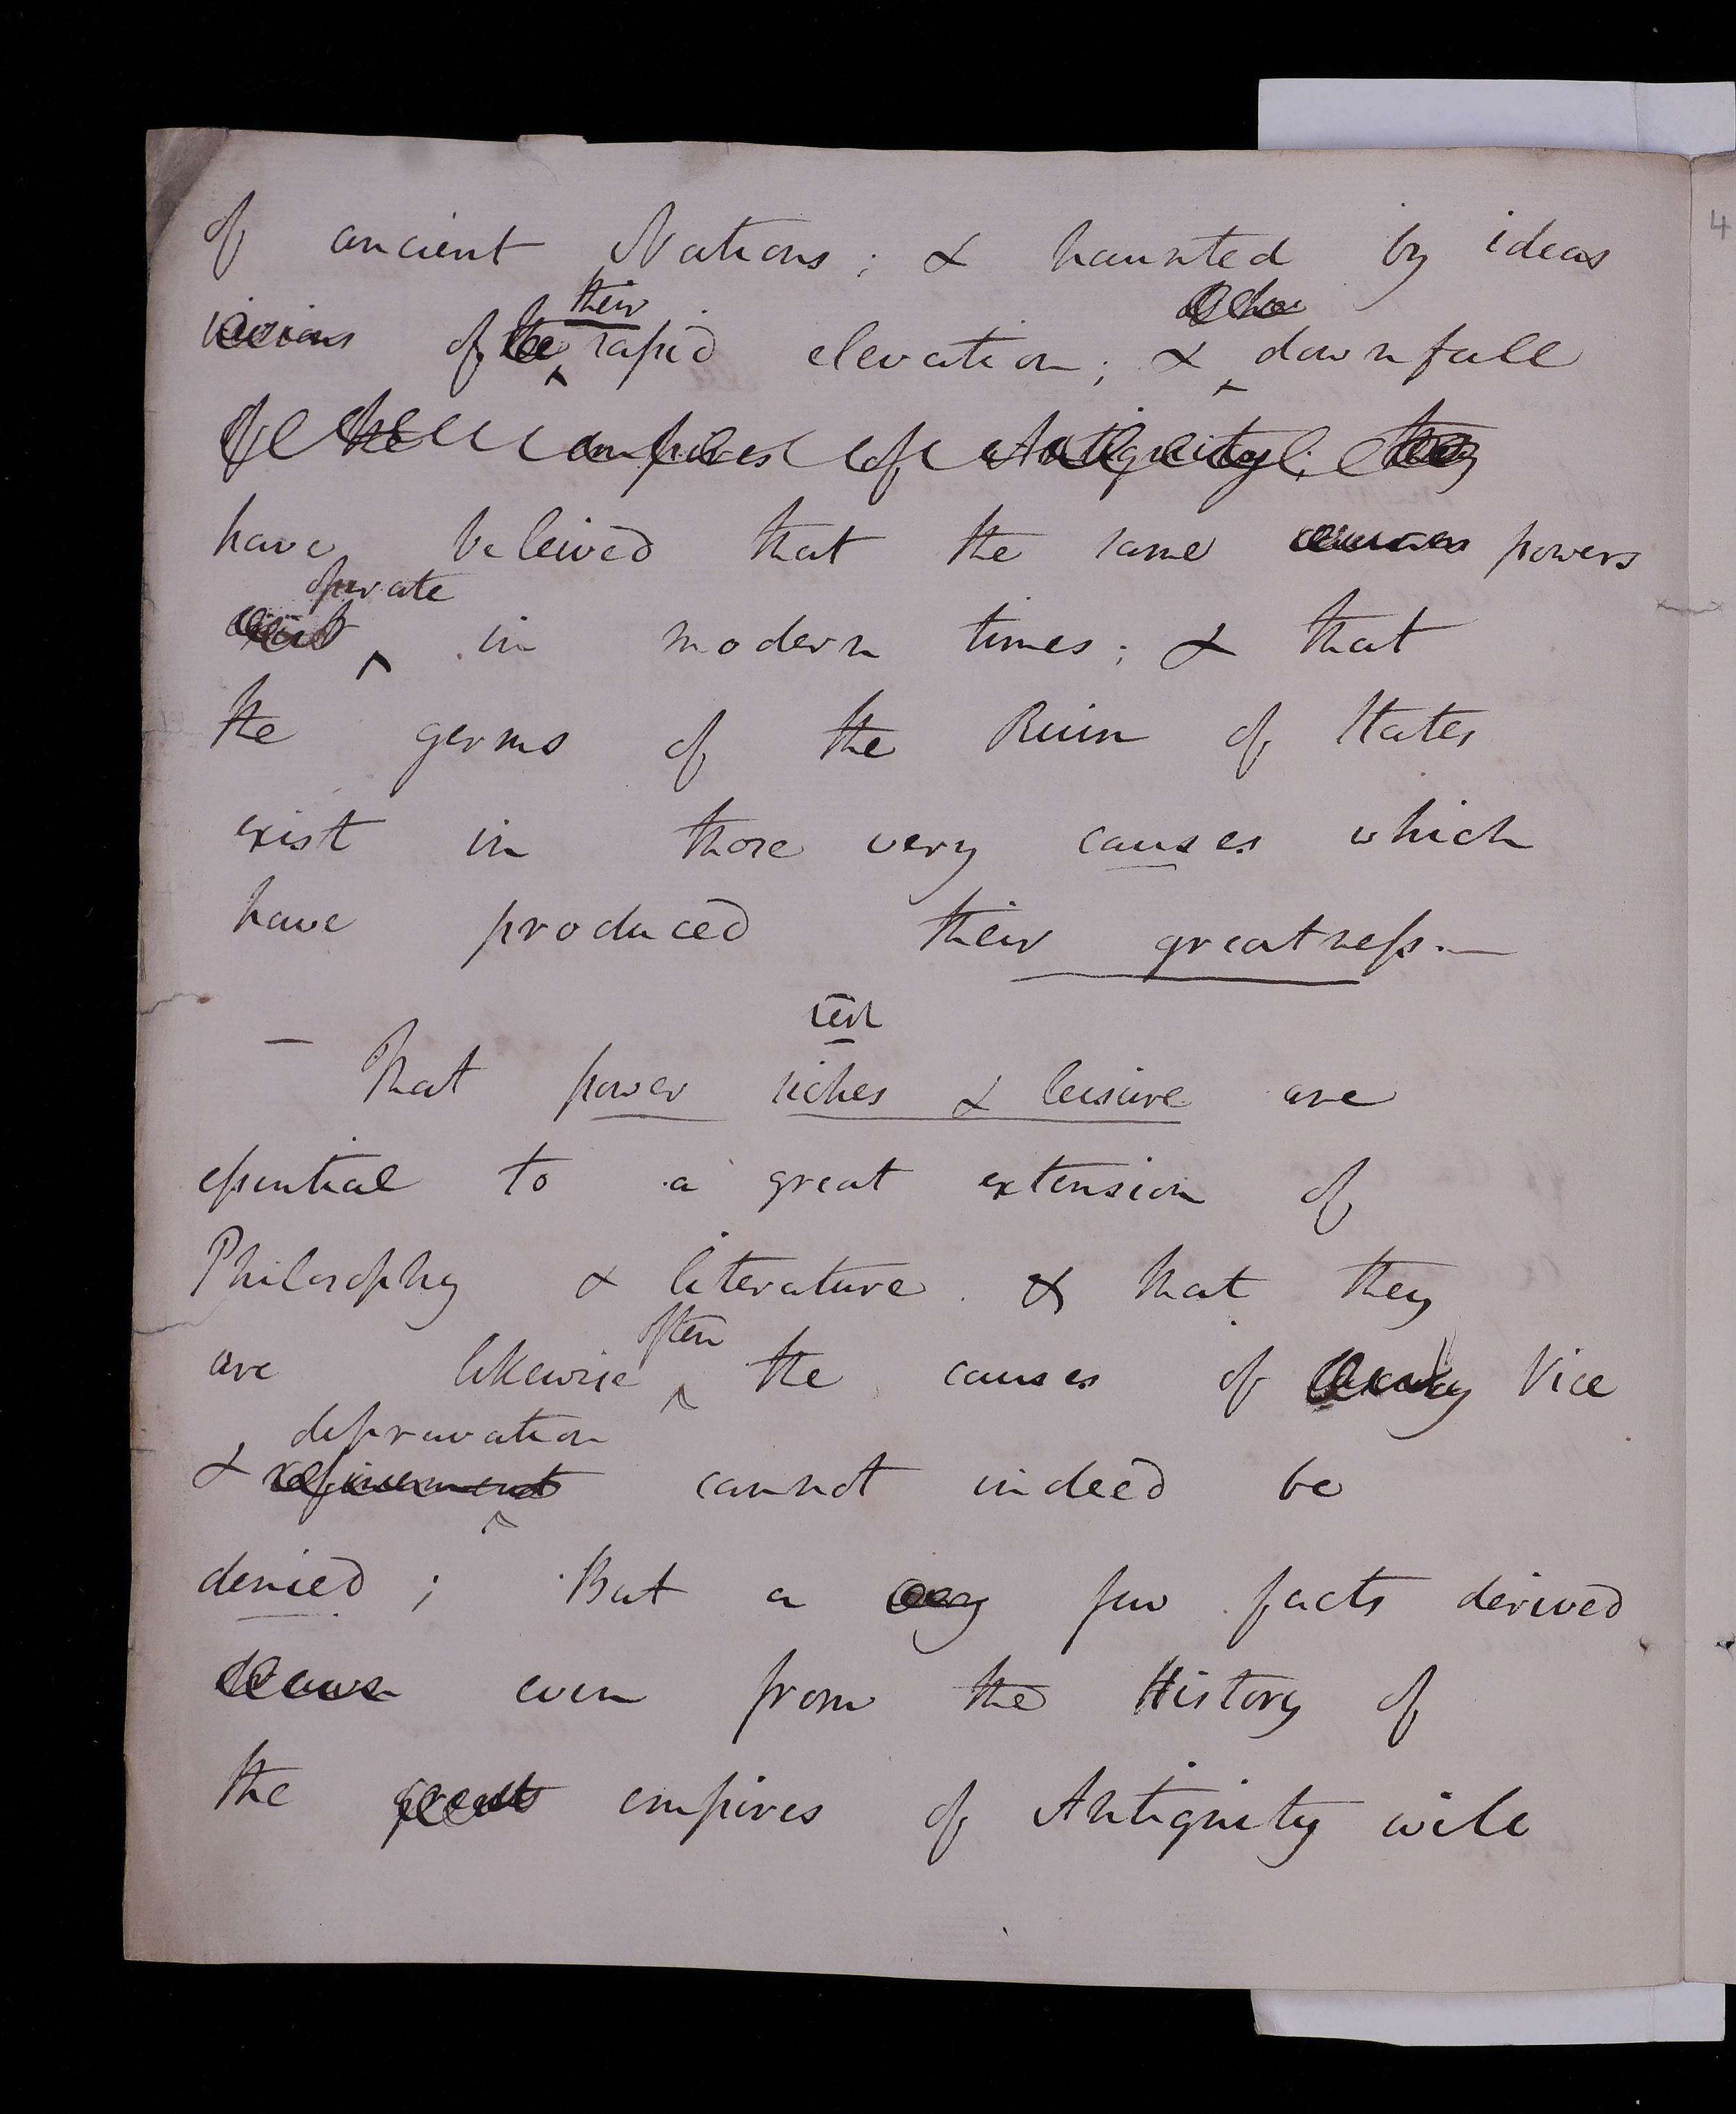 of ancient Nations; & haunted by ideas
their
visions of the rapid elevation; & downfall
of the empires of Antiquity; they
have beleived that the same causes powers
operate
exist in modern times; & that
the germs of the Ruin of States
exist in those very causes which
have produced their greatness.—
— That power riches & leisure are
essential to a great extension of
Philosophy & literature. & that they
often
are likewise the causes of luxury Vice
depravation
& refinement cannot indeed be
denied; But a very few facts derived
drawn even from the History of
the great empires of Antiquity will
4